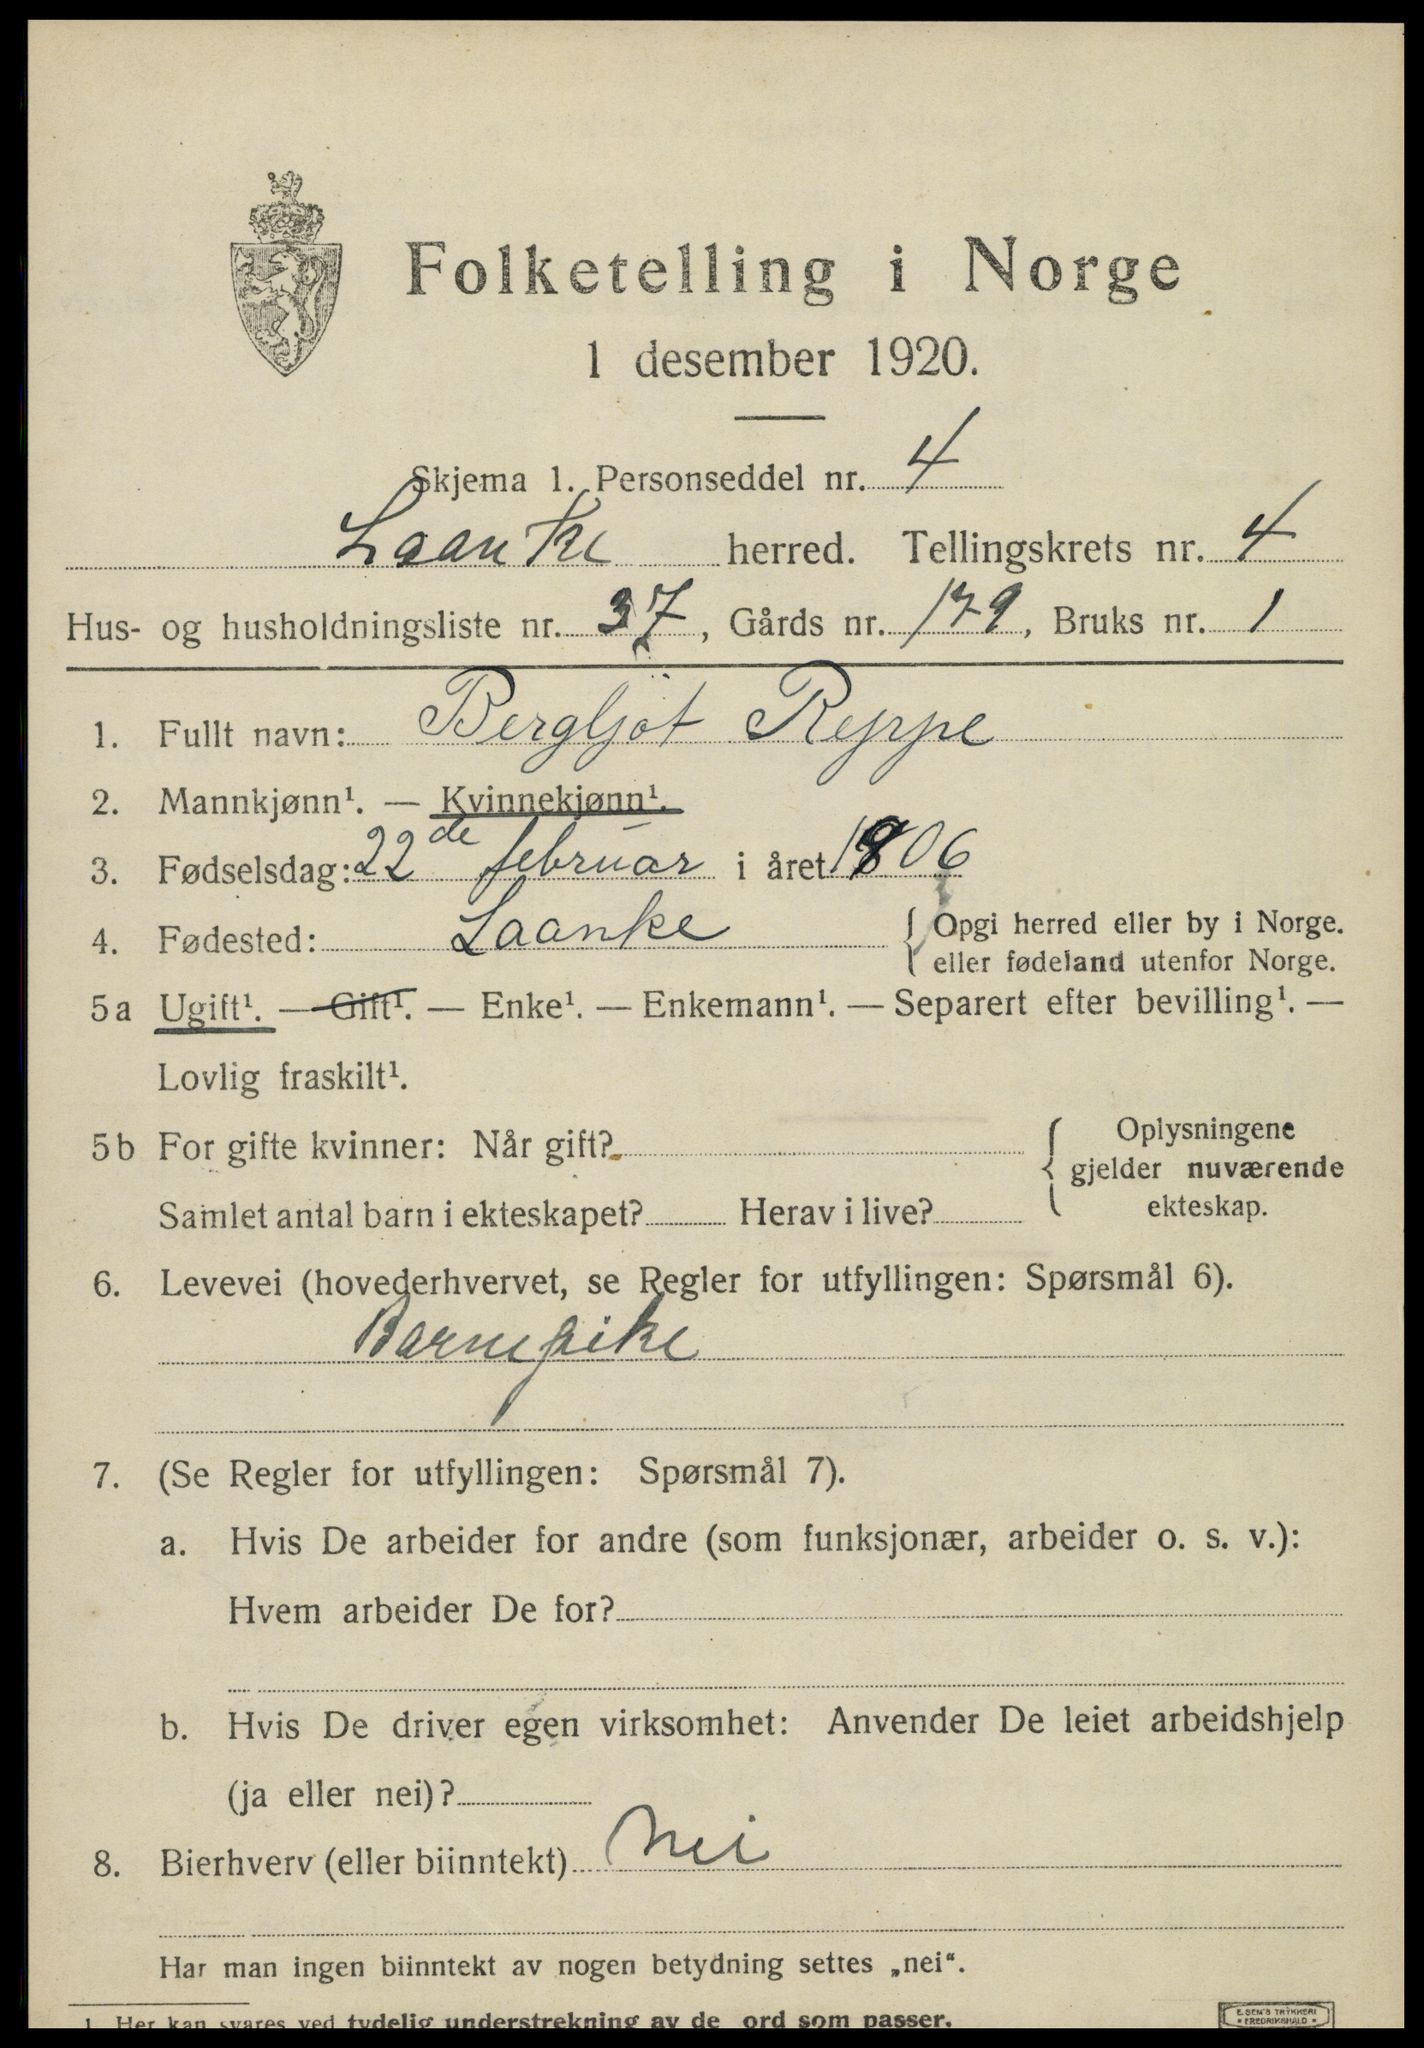 Folketelling i Norge
1 desember 1920.
Skjema 1. Personseddel nr. 4
Laanke herred. Tellingskrets nr. 4
Hus- og husholdningsliste nr. 37, Gårds nr. 179, Bruks nr. 1
1. Fullt navn: Bergljot Reppe
2. Mannkjønn¹. — Kvinnekjønn¹.
3. Fødselsdag: 22de februar i året 1906
4. Fødested: Laanke { Opgi herred eller by i Norge.
eller fødeland utenfor Norge.
5 a Ugift¹. — Gift¹. — Enke¹. — Enkemann¹. — Separert efter bevilling¹. —
Lovlig fraskilt¹.
5 b For gifte kvinner: Når gift? { Oplysningene
gjelder nuværende
Samlet antal barn i ekteskapet? Herav i live? ekteskap.
6. Levevei (hovederhvervet, se Regler for utfyllingen: Spørsmål 6).
Barnepike
7. (Se Regler for utfyllingen: Spørsmål 7).
a. Hvis De arbeider for andre (som funksjonær, arbeider o. s. v.):
Hvem arbeider De for?
b. Hvis De driver egen virksomhet: Anvender De leiet arbeidshjelp
(ja eller nei)?
8. Bierhverv (eller biinntekt) Nei
Har man ingen biinntekt av nogen betydning settes „nei“.
1. Her kan svares ved tydelig understrekning av de ord som passer.
E. SEM'S TRYKKERI
• FREDRIKSHALD •